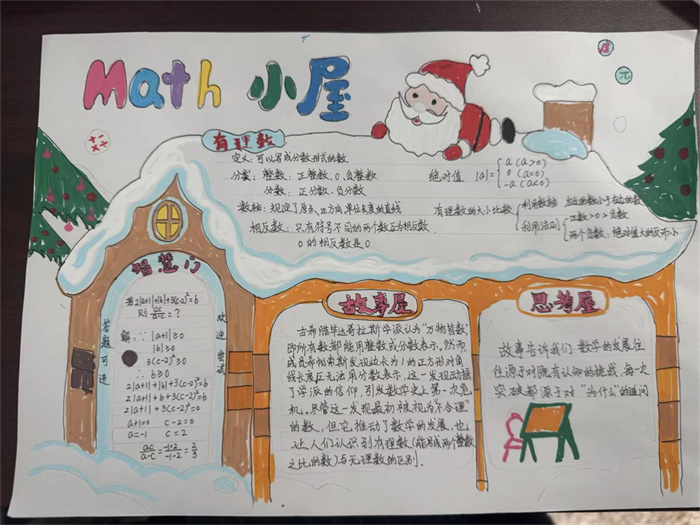 Math 小屋
有理数
定义：可以写成分数形式的数
分类：整数：正整数、0、负整数
分数：正分数、负分数
数轴：规定了原点、正方向、单位长度的直线
相反数：只有符号不同的两个数互为相反数
0的相反数是0
绝对值 |a|=
a (a>0)
0 (a=0)
-a (a<0)
有理数的大小比较
利用数轴 左边的数小于右边的数
利用法则
正数>0>负数
两个负数：绝对值大的反而小
π
智慧门
答题可进
欢迎尝试
若2|a+1|+|b|+3(c-2)²=b
则 ac/a-c = ?
解：∵ |a+1|≥0
|b|≥0
3(c-2)²≥0
∴ b≥0
2|a+1|+|b|+3(c-2)²=b
2|a+1|+b+3(c-2)²=b
2|a+1|+3(c-2)²=0
a+1=0 c-2=0
a=-1 c=2
ac/a-c = -1·2/-1-2 = 2/3
故事屋
古希腊毕达哥拉斯学派认为"万物皆数"
即所有数都能用整数或分数表示，然而
成员希帕索斯发现边长为1的正方形对角
线长度无法用分数表示，这一发现动摇
了学派的信仰，引发数学史上第一次危
机。尽管这一发现最初被视为"不合理"
的数，但它推动了数学的发展，也
让人们认识到有理数（能写成两个整数
之比的数）与无理数的区别。
思考屋
故事告诉我们：数学的发展往
往源于对既有认知的挑战，每一次
突破都源于对"为什么"的追问